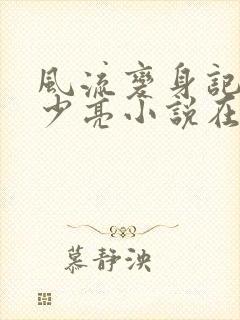 風流變身記
少亮小說在
慕静泱